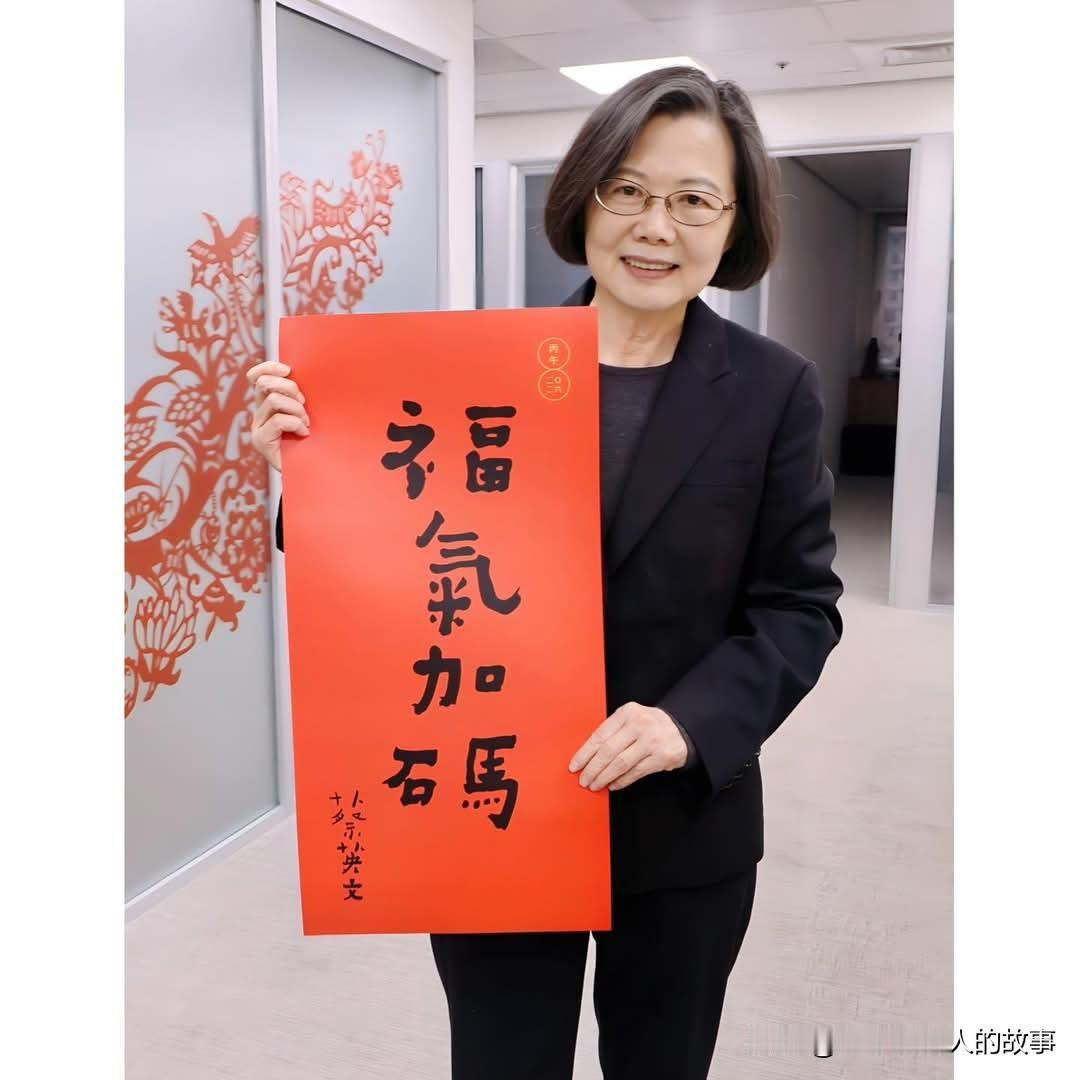 丙午
二〇二六
福氣加碼
蔡英文
人的故事